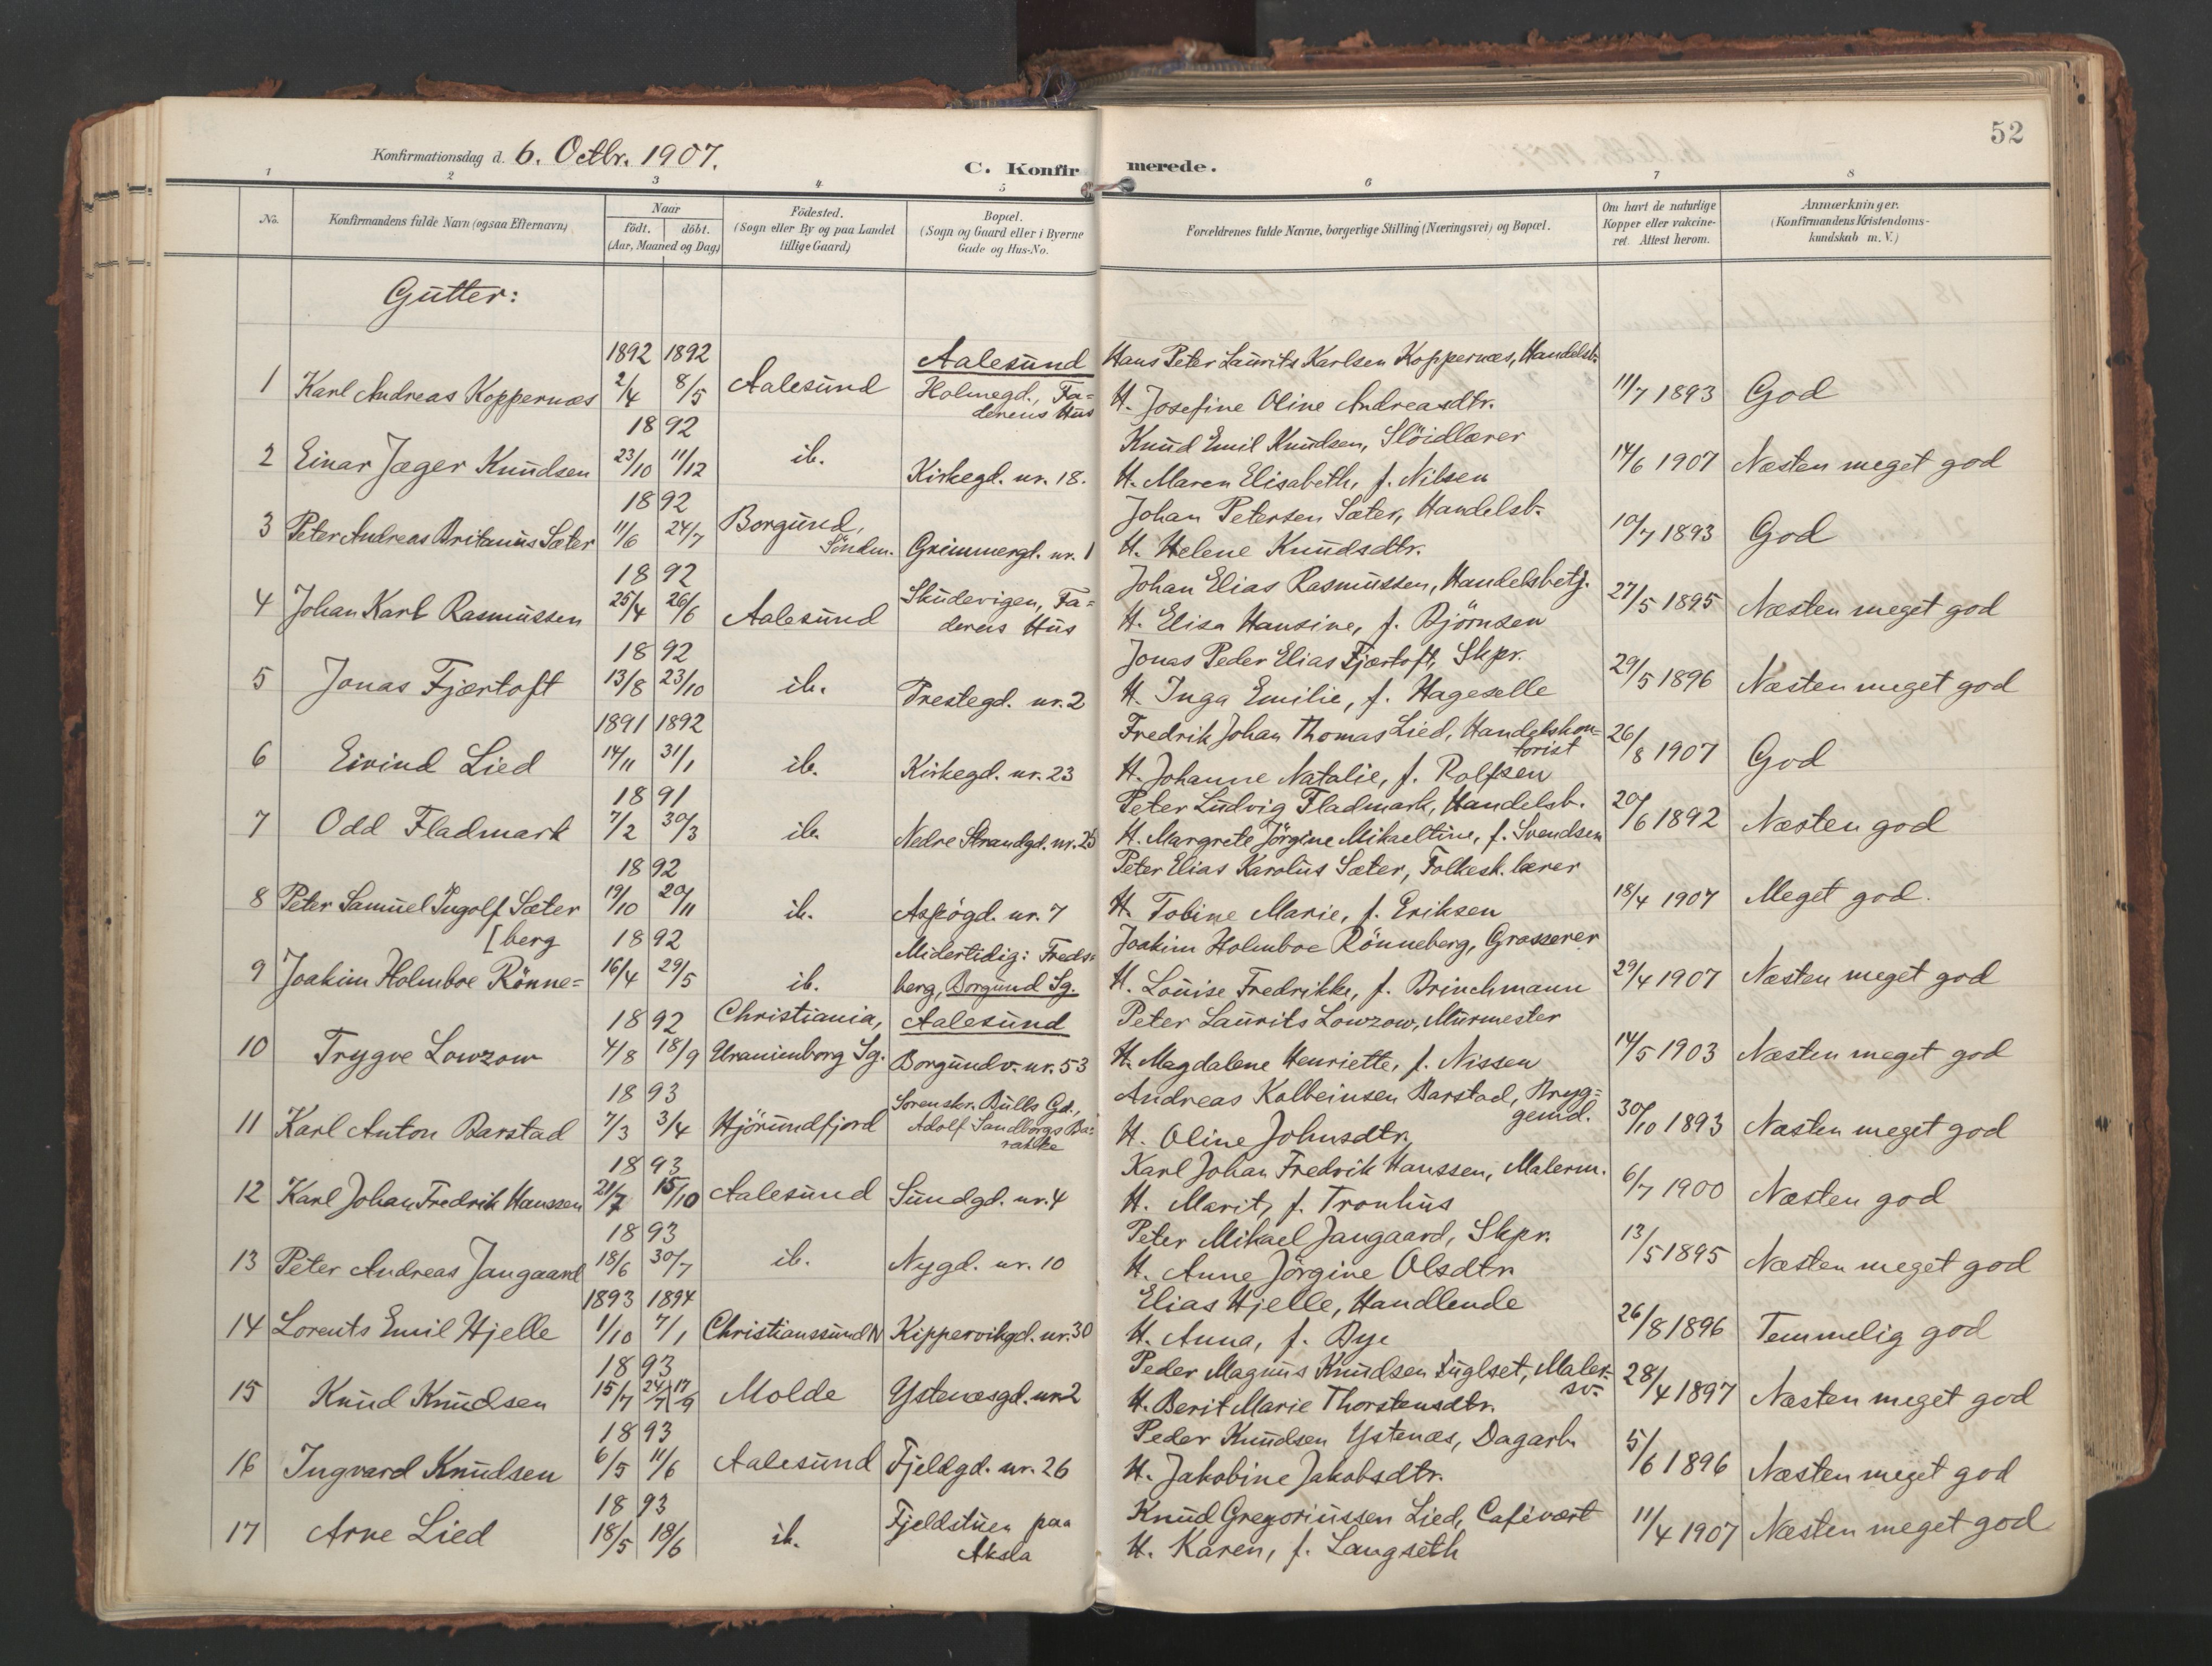 52
Konfirmationsdag d. 6. Octbr. 1907.
C. Konfirmerede.
1 2 3 4 5 6 7 8
No. | Konfirmandens fulde Navn (ogsaa Efternavn) | Naar født. døbt. (Aar, Maaned og Dag) | Födested. (Sogn eller By og paa Landet tillige Gaard) | Bopæl. (Sogn og Gaard eller i Byerne Gade og Hus-No. | Forældrenes fulde Navne, borgerlige Stilling (Næringsvei) og Bopæl. | Om havt de naturlige Kopper eller vakcineret. Attest herom. | Anmærkninger. (Konfirmandens Kristendomskundskab m. V.)
Gutter:
1 | Karl Andreas Koppernæs | 1892 2/4 | 1892 8/5 | Aalesund | Aalesund Holmegd., Faderens Hus | Hans Peter Laurits Karlsen Koppernæs, Handelsb. H. Josefine Oline Andreasdtr. | 11/7 1893 | God
2 | Einar Jæger Knudsen | 1892 23/10 | 11/12 | ib. | Kirkegd. nr. 18. | Knud Emil Knudsen, Slöidlærer H. Maren Elisabeth, f. Nilsen | 14/6 1907 | Næsten meget god
3 | Peter Andreas Britanus Sæter | 1892 11/6 | 24/7 | Borgund, Söndm. | Grimmergt. nr. 1 | Johan Petersen Sæter, Handelsb. H. Helene Knudsdtr. | 10/7 1893 | God
4 | Johan Karl Rasmussen | 1892 25/4 | 26/6 | Aalesund | Skudevigen, Faderens Hus | Johan Elias Rasmussen, Handelsbetj. H. Elisa Hansine, f. Björnsen | 27/5 1895 | Næsten meget god
5 | Jonas Fjærtoft | 1892 13/8 | 23/10 | ib. | Prestegd. nr. 2 | Jonas Peder Elias Fjærtoft, Skpr. H. Inga Emilie, f. Hageselle | 29/5 1896 | Næsten meget god
6 | Eivind Lied | 1891 14/11 | 1892 31/1 | ib. | Kirkegd. nr. 23 | Fredrik Johan Thomas Lied, Handelskontorist H. Johanne Natalie, f. Rolfsen | 26/8 1907 | God
7 | Odd Fladmark | 1891 7/2 | 30/3 | ib. | Nedre Strandgd. nr. 25 | Peter Ludvig Fladmark, Handelsb. H. Margrete Jörgine Mikaeltine, f. Svendsen | 20/6 1892 | Næsten god
8 | Peter Samuel Ingolf Sæter | 1892 19/10 | 20/11 | ib. | Aspögd. nr. 7 | Peter Elias Karolus Sæter, Folkesk.lærer H. Tobine Marie, f. Eriksen | 18/4 1907 | Meget god.
9 | Joakim Holmboe Rönne= [berg | 1892 16/4 | 29/5 | ib. | Midertidig: Fredsberg, Borgund Sg. | Joakim Holmboe Rönneberg, Grosserer H. Louise Fredrikke, f. Brinchmann | 29/4 1907 | Næsten meget god
10 | Trygve Lowzow | 1892 4/8 | 18/9 | Christiania, Uranienborg Sg. | Aalesund Borgundv. nr. 53 | Peter Laurits Lowzow, Murmester H. Magdalene Henriette, f. Nissen | 14/5 1903 | Næsten meget god
11 | Karl Anton Barstad | 1893 7/3 | 3/4 | Hjörundfjord | Sorenskr. Bulls Gd., Adolf Sandborgs Barakke | Andreas Kolbeinsen Barstad, Bryggemd. H. Oline Johnsdtr. | 30/10 1893 | Næsten meget god
12 | Karl Johan Fredrik Hanssen | 1893 21/7 | 15/10 | Aalesund | Sundgd. nr. 4 | Karl Johan Fredrik Hanssen, Malerm. H. Marit, f. Tronhus | 6/7 1900 | Næsten god
13 | Peter Andreas Jangaard | 1893 18/6 | 30/7 | ib. | Nygd. nr. 10 | Peter Mikael Jangaard, Skpr. H. Anne Jörgine Olsdtr. | 13/5 1895 | Næsten meget god
14 | Lorents Emil Hjelle | 1893 1/10 | 1894 7/1 | Christianssund N | Kippervikgd. nr. 30 | Elias Hjelle, Handlende H. Anna, f. Bye | 26/8 1896 | Temmelig god
15 | Knud Knudsen | 1893 15/7 | 24/7 17/9 | Molde | Ystenesgd. nr 2 | Peder Magnus Knudsen Fuglset, Malersv. H. Berit Marie Thorstensdtr. | 28/4 1897 | Næsten meget god
16 | Ingvard Knudsen | 1893 6/5 | 11/6 | Aalesund | Fjeldgd. nr. 26 | Peder Knudsen Ystenæs, Dagarb. H. Jakobine Jakobsdtr. | 5/6 1896 | Næsten meget god
17 | Arne Lied | 1893 18/5 | 18/6 | ib. | Fjeldstuen paa Aksla | Knud Gregoriussen Lied, Cafévært H. Karen, f. Langseth | 11/4 1907 | Næsten meget god